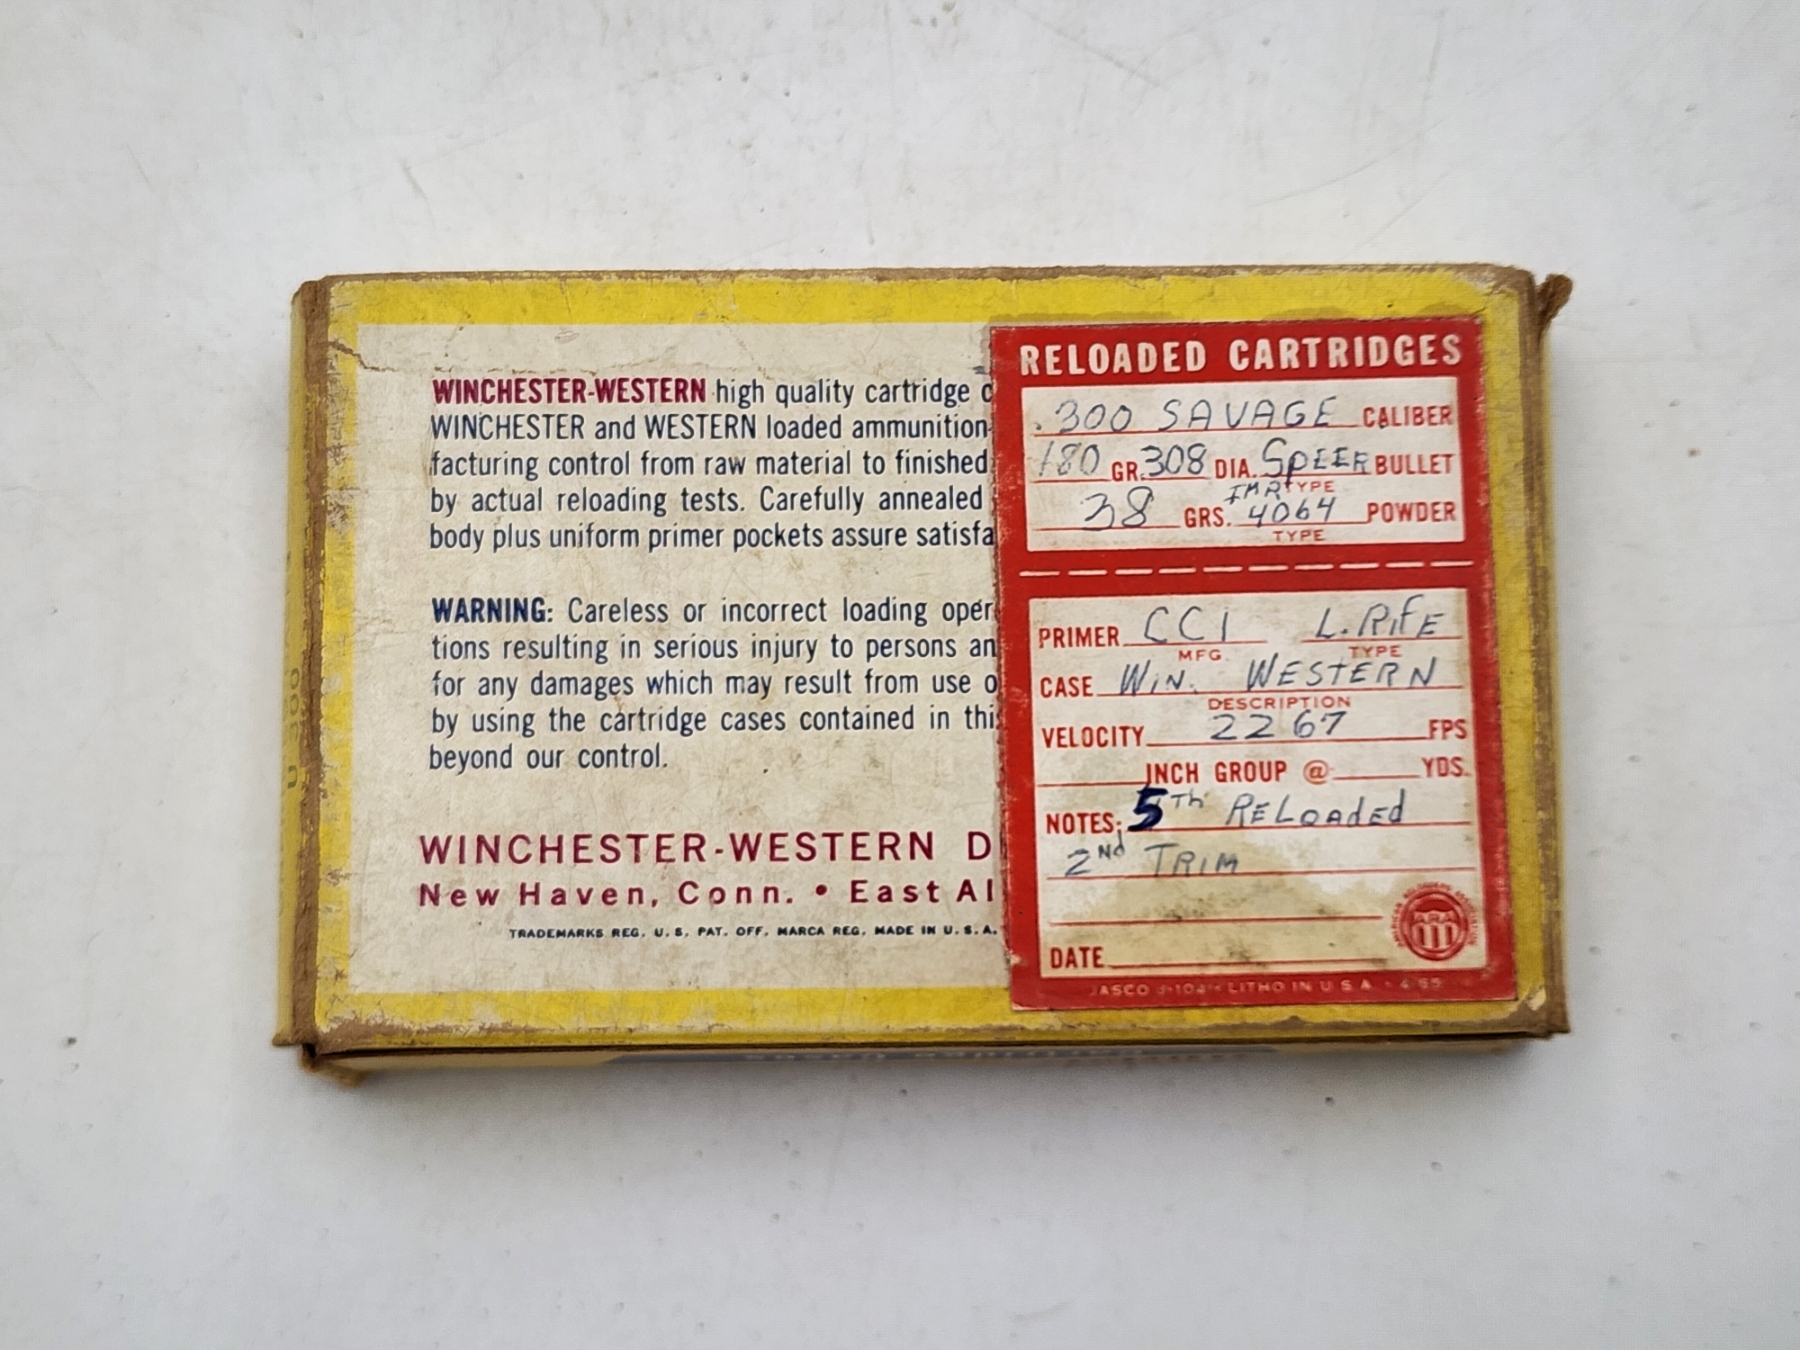 WINCHESTER-WESTERN high quality cartridge c
WINCHESTER and WESTERN loaded ammunition
facturing control from raw material to finished
by actual reloading tests. Carefully annealed
body plus uniform primer pockets assure satisfa
WARNING: Careless or incorrect loading oper
tions resulting in serious injury to persons an
for any damages which may result from use o
by using the cartridge cases contained in thi
beyond our control.
WINCHESTER-WESTERN D
New Haven, Conn. • East Al
TRADEMARKS REG. U. S. PAT. OFF. MARCA REG. MADE IN U. S. A.
RELOADED CARTRIDGES
.300 SAVAGE CALIBER
180 GR. 308 DIA. SPEER BULLET
TYPE
38 GRS. IMR 4064 POWDER
TYPE
PRIMER CCI L. RifE
MFG. TYPE
CASE WiN. WESTERN
DESCRIPTION
VELOCITY 2267 FPS
INCH GROUP @ YDS.
NOTES: 5Th RELOADED
2ND TRIM
DATE
ARA
JASCO LITHO IN U S A